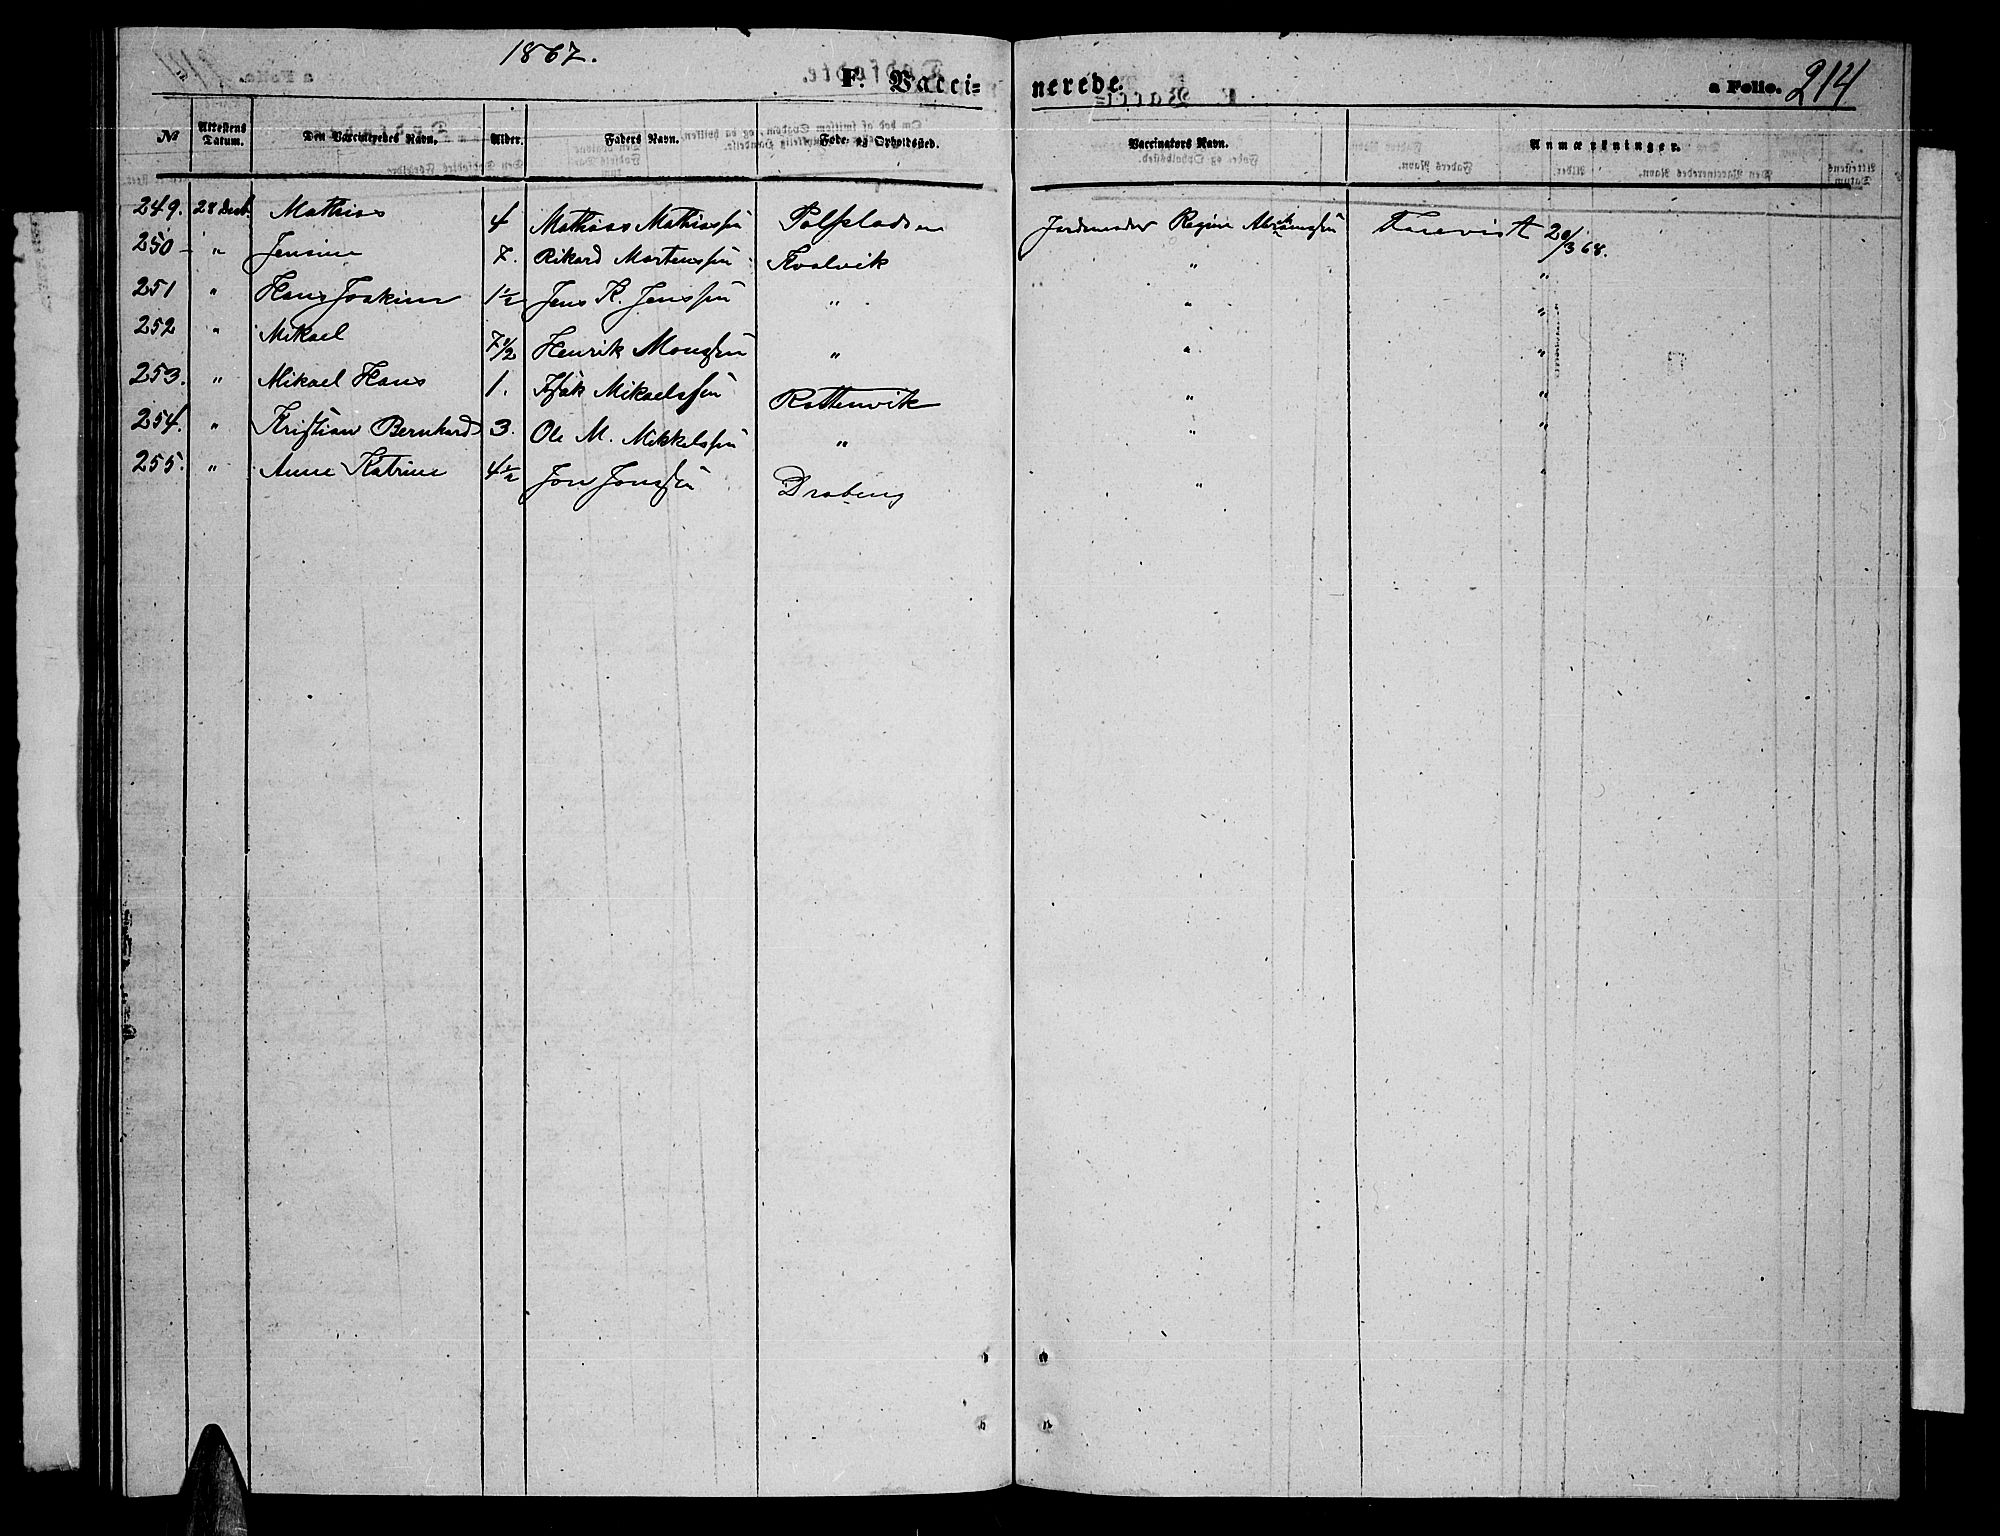 1867.
F. Vacci- nerede. a Folio. 214
No Attestens Datum. Den Vaccineredes Navn. Alder. Faders Navn. Føde- og Opholdssted. Vaccinators Navn. Anmærkninger.
249. 28 Decb. Mathias 4 Mathias Mathiassen Jordemoder Regine Forevist 20/3 68.
250 - " Jensine 7. Rikard Mortenssen Kvalvik " "
251 " Hans Joakim 1½ Jens K. Jenssen " " "
252 " Mikael 7½ Henrik Monssen " " "
253. " Mikael Hans 1. Isak Mikaelssen Rottenvik " "
254. " Kristian Bernhard 3. Ole M. Mikkelssen " " "
255. " Anne Katrine 4½ Jon Jonssen Drabeng " "